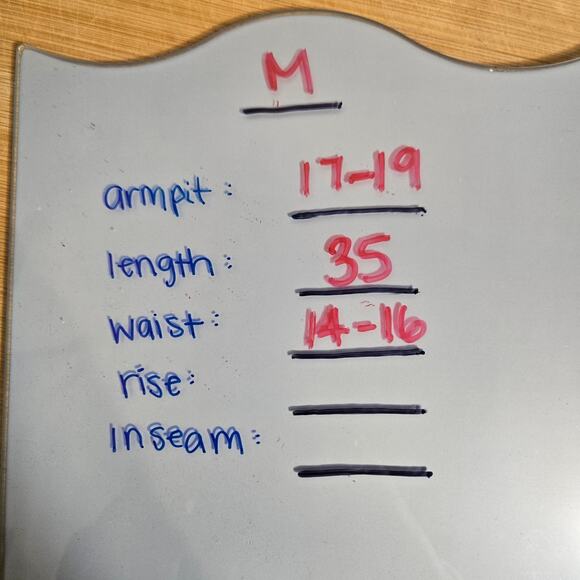 M
armpit: 17-19
length: 35
waist: 14-16
rise:
inseam: